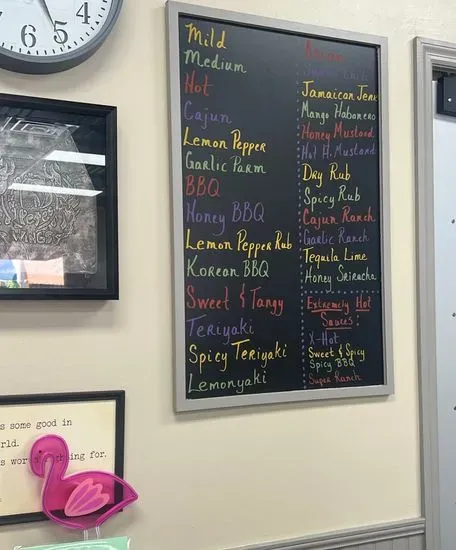 6
5
4
Mild
Medium
Hot
Cajun
Lemon Pepper
Garlic Parm
BBQ
Honey BBQ
Lemon Pepper Rub
Korean BBQ
Sweet & Tangy
Teriyaki
Spicy Teriyaki
Lemonyaki
Jamaican Jerk
Mango Habanero
Honey Mustard
Hot H. Mustard
Dry Rub
Spicy Rub
Cajun Ranch
Garlic Ranch
Tequila Lime
Honey Sriracha
Extremely Hot
Sauces:
X-Hot
Sweet & Spicy
Spicy BBQ
Super Ranch
s some good in
rld.
s wor hing for.